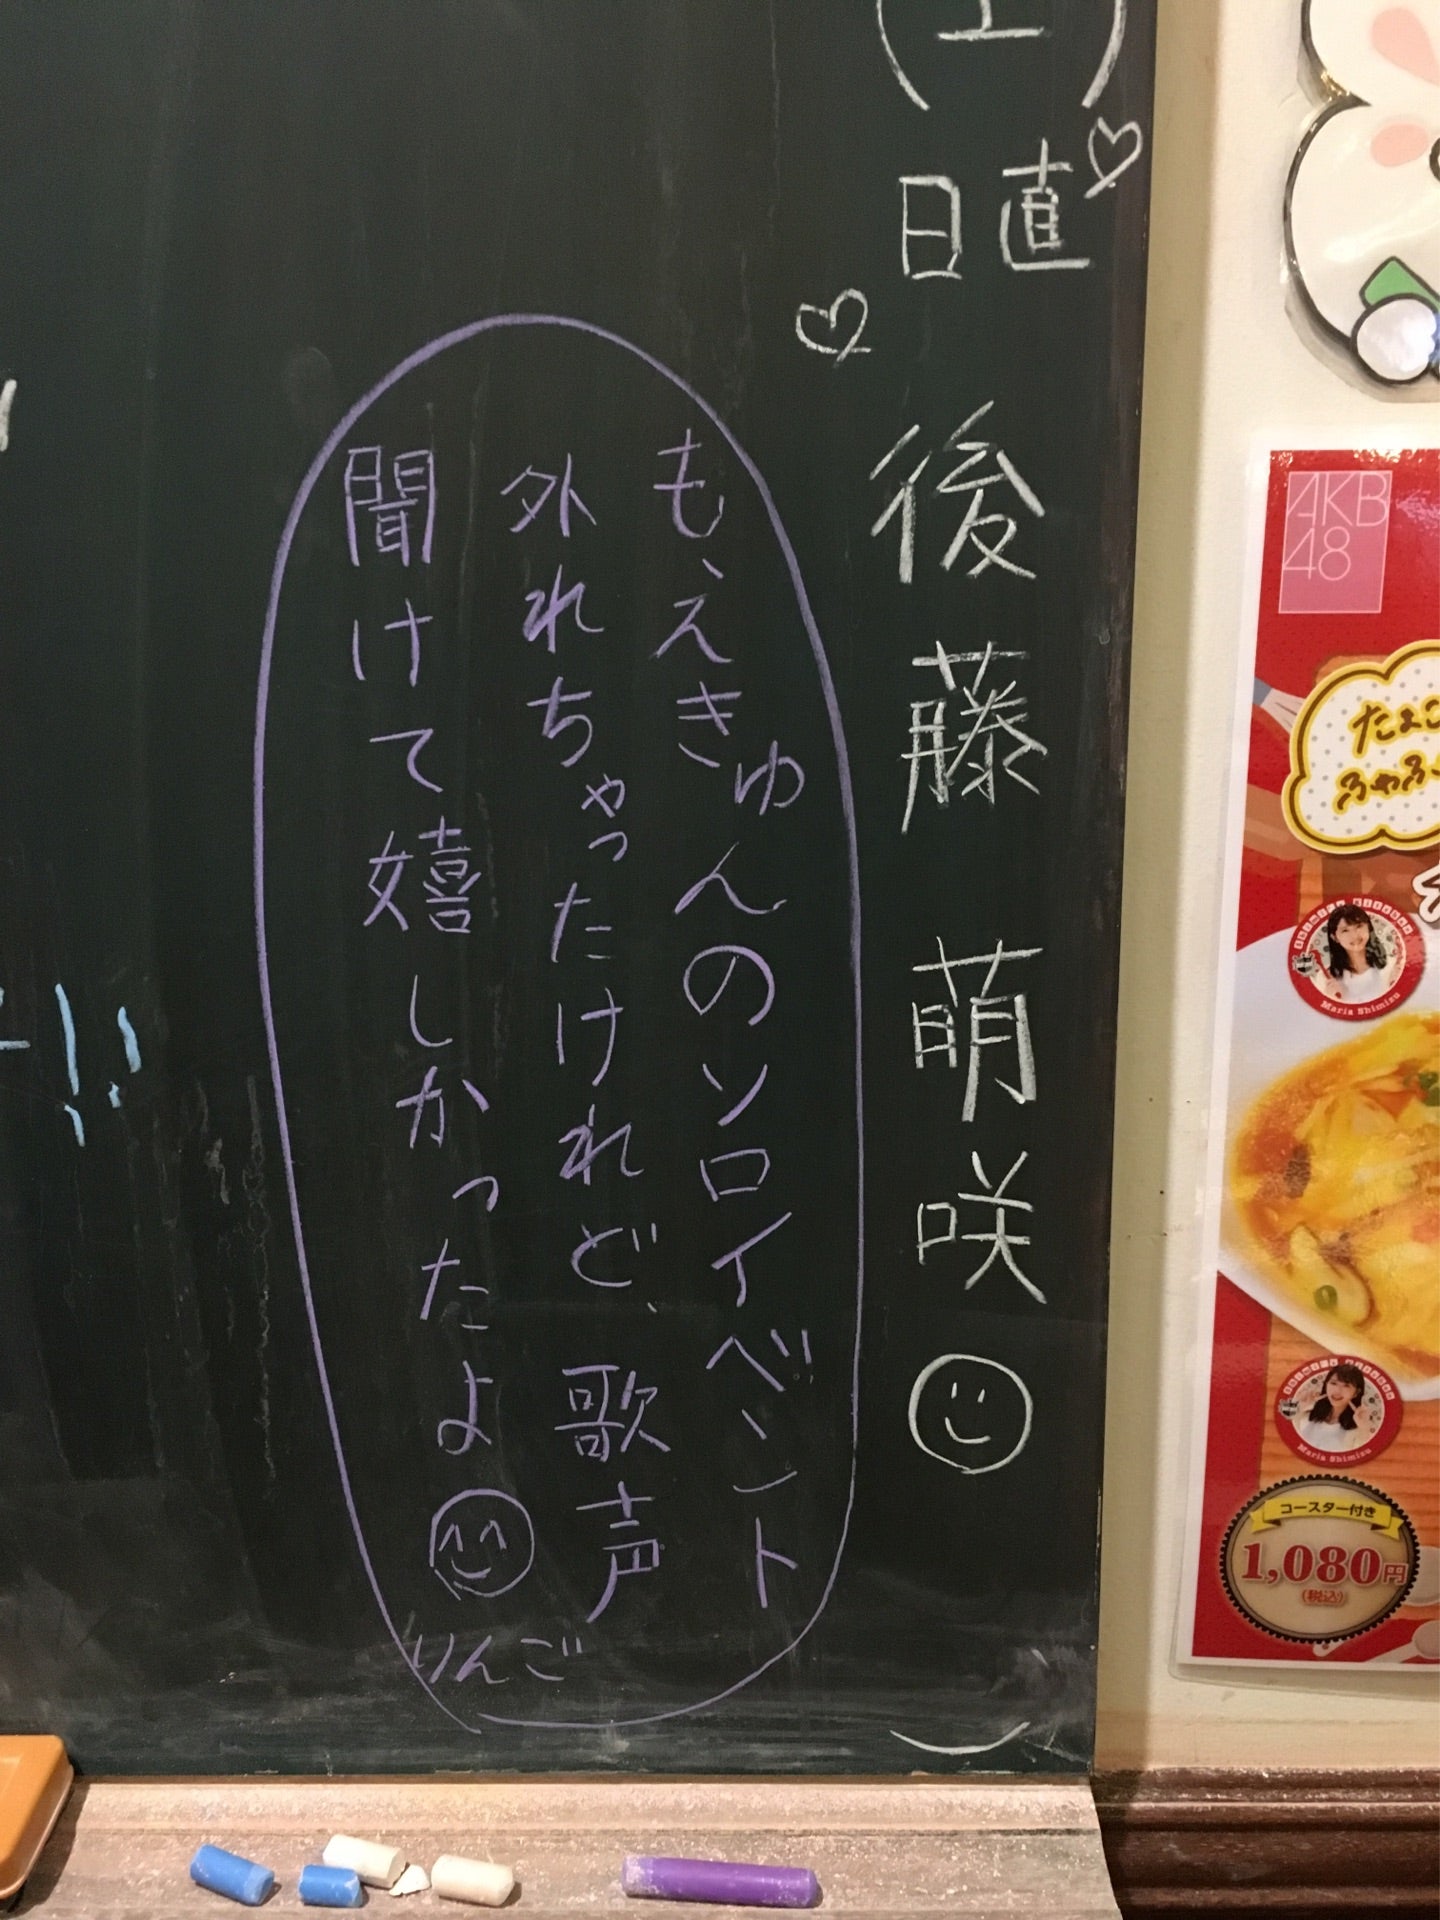 (土)
日直
後藤 萌咲
もえきゅんのソロイベント
外れちゃったけれど、歌声
聞けて嬉しかったよ
りんご
!!
AKB
48
Maria Shimizu
Maria Shimizu
コースター付き
1,080円
(税込)